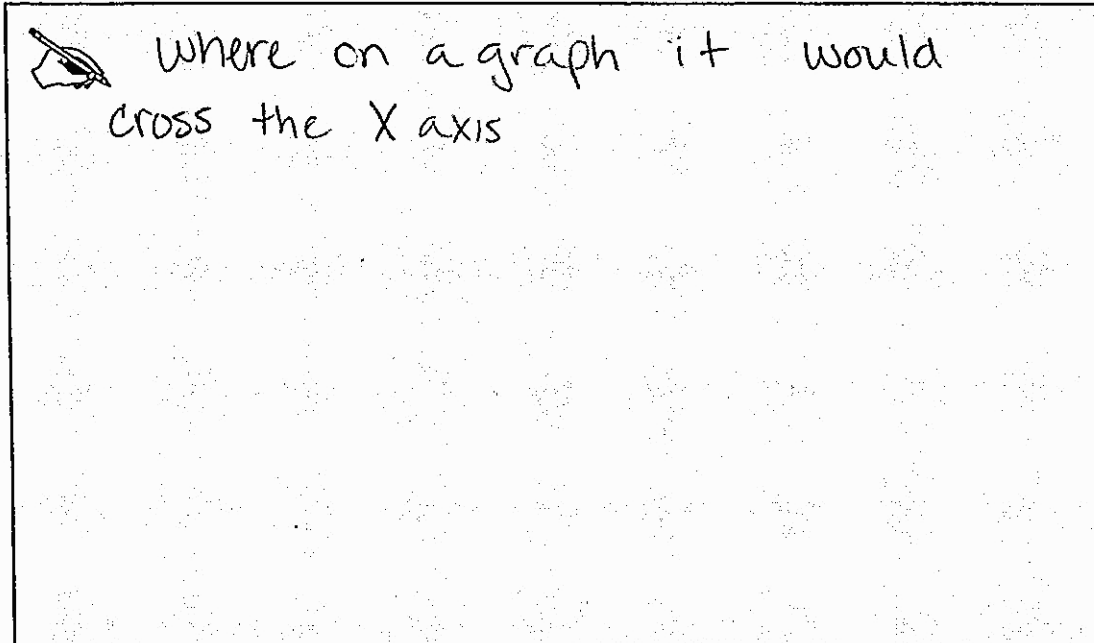 where on a graph it would
cross the X axis